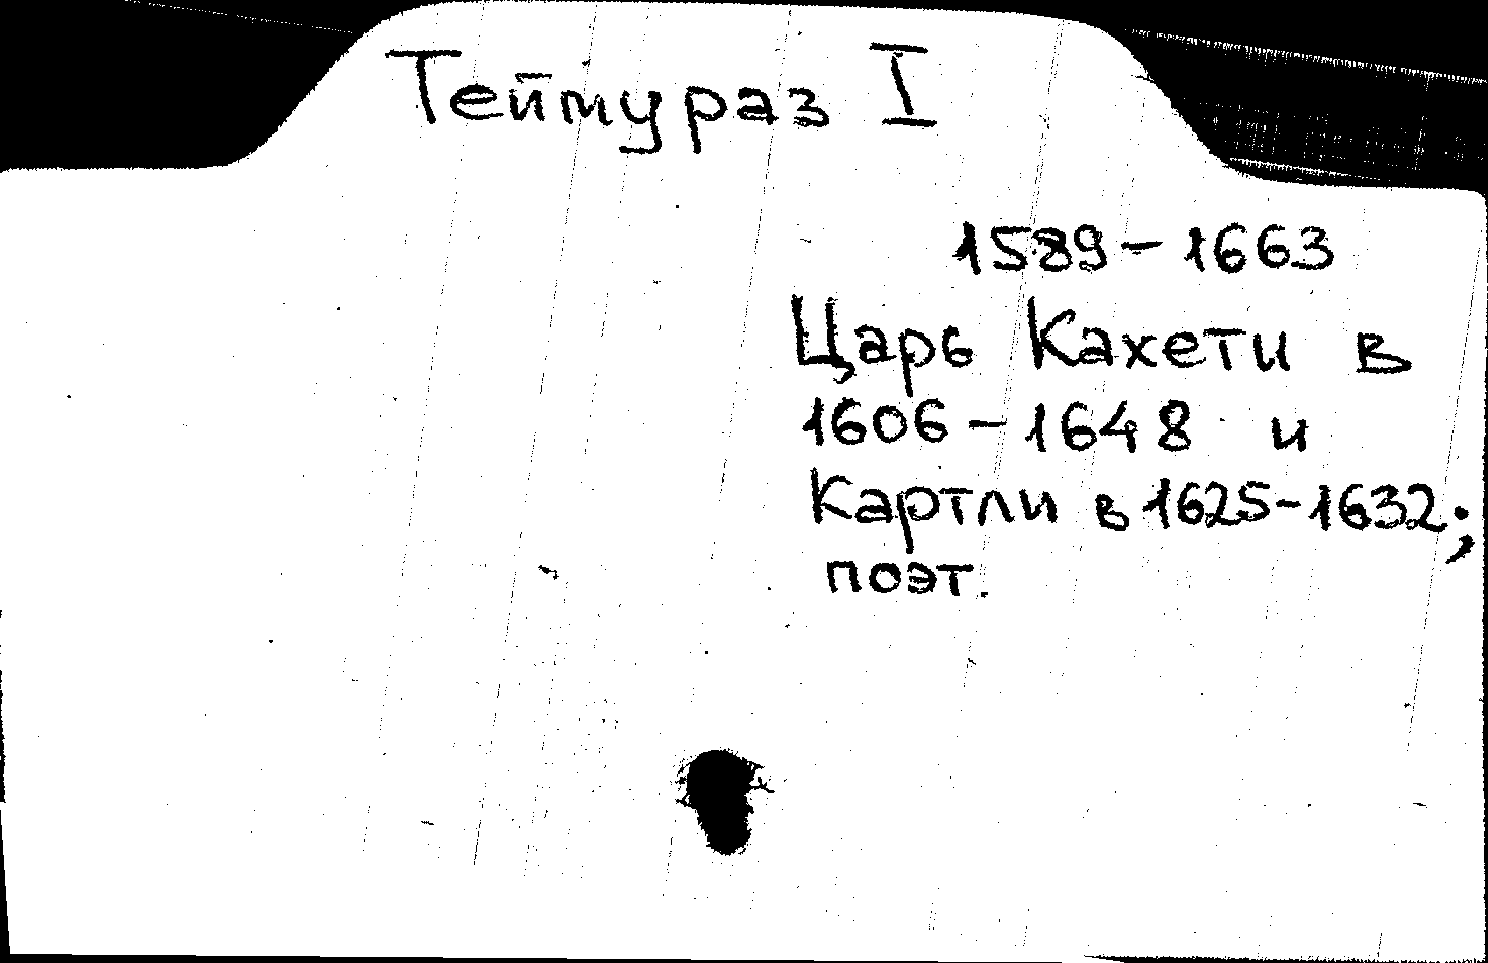 Теймураз I
1589-1663
Царь Кахети в
1606-1648 и
Картли в 1625-1632;
поэт.